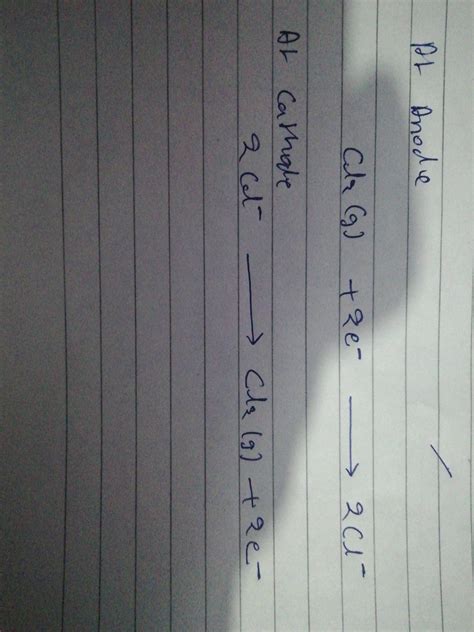 At Anode
Cl2 (g) + 2e⁻ ⟶ 2Cl⁻
At Cathode
2Cl⁻ ⟶ Cl2 (g) + 2e⁻